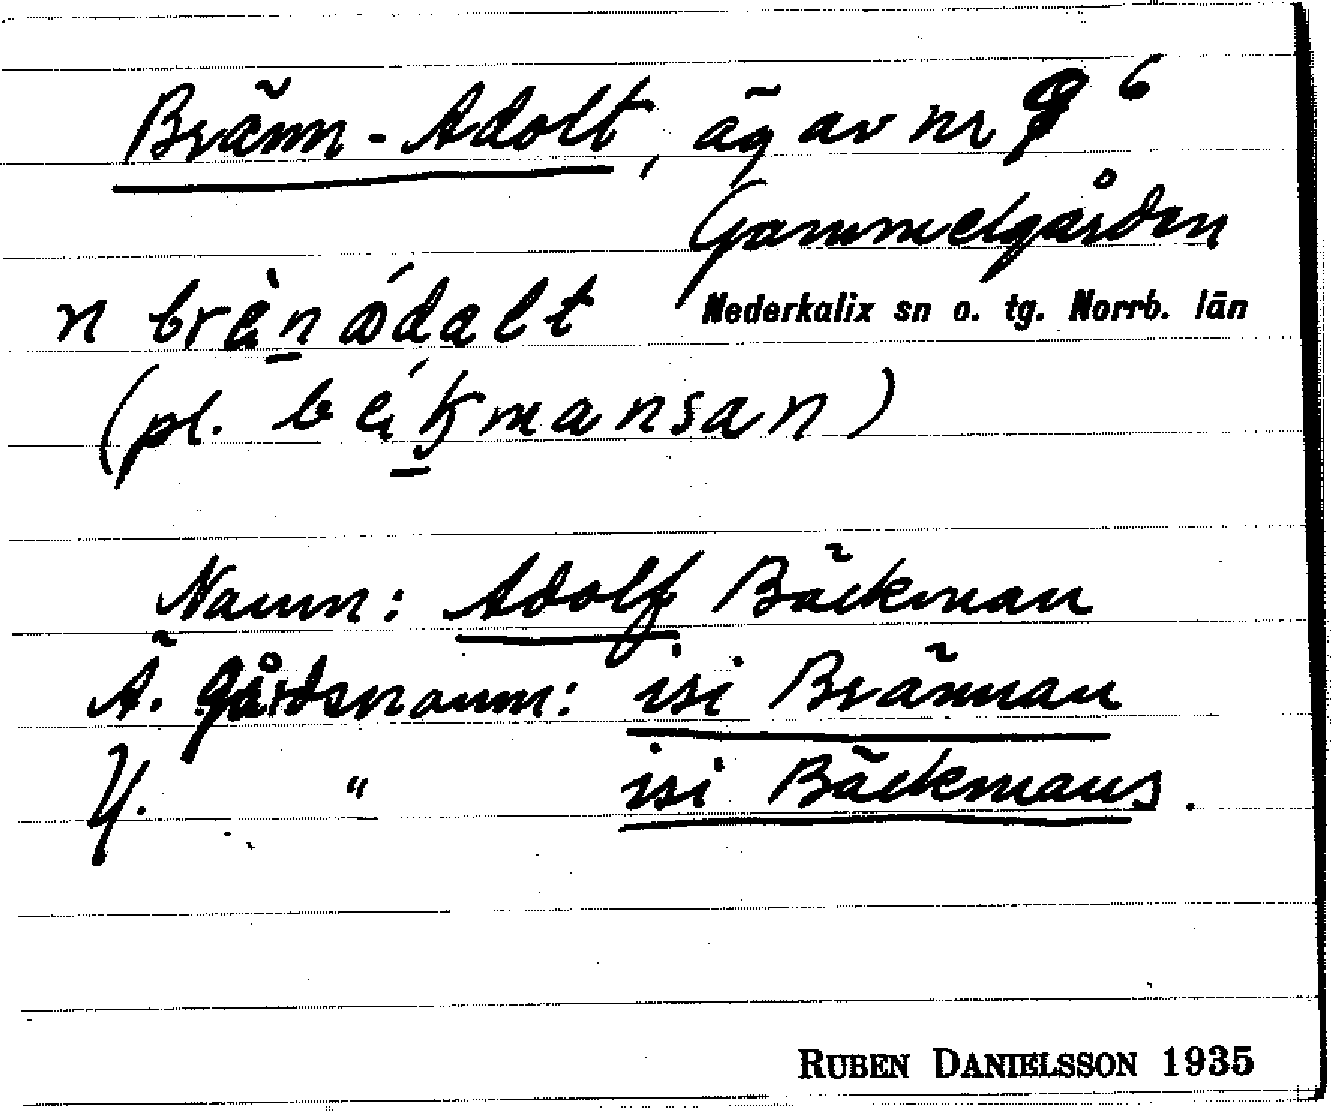 Bränn-Adolt, äg av nr 6
Gammelgården
n brän ådalt Nederkalix sn o. tg. Norrb. län
(pl. bäkmansan)
Namn: Adolf Bäckman
Ä. gårdsnamn: isi Brännan
Y. " isi Bäckmans.
RUBEN DANIELSSON 1935